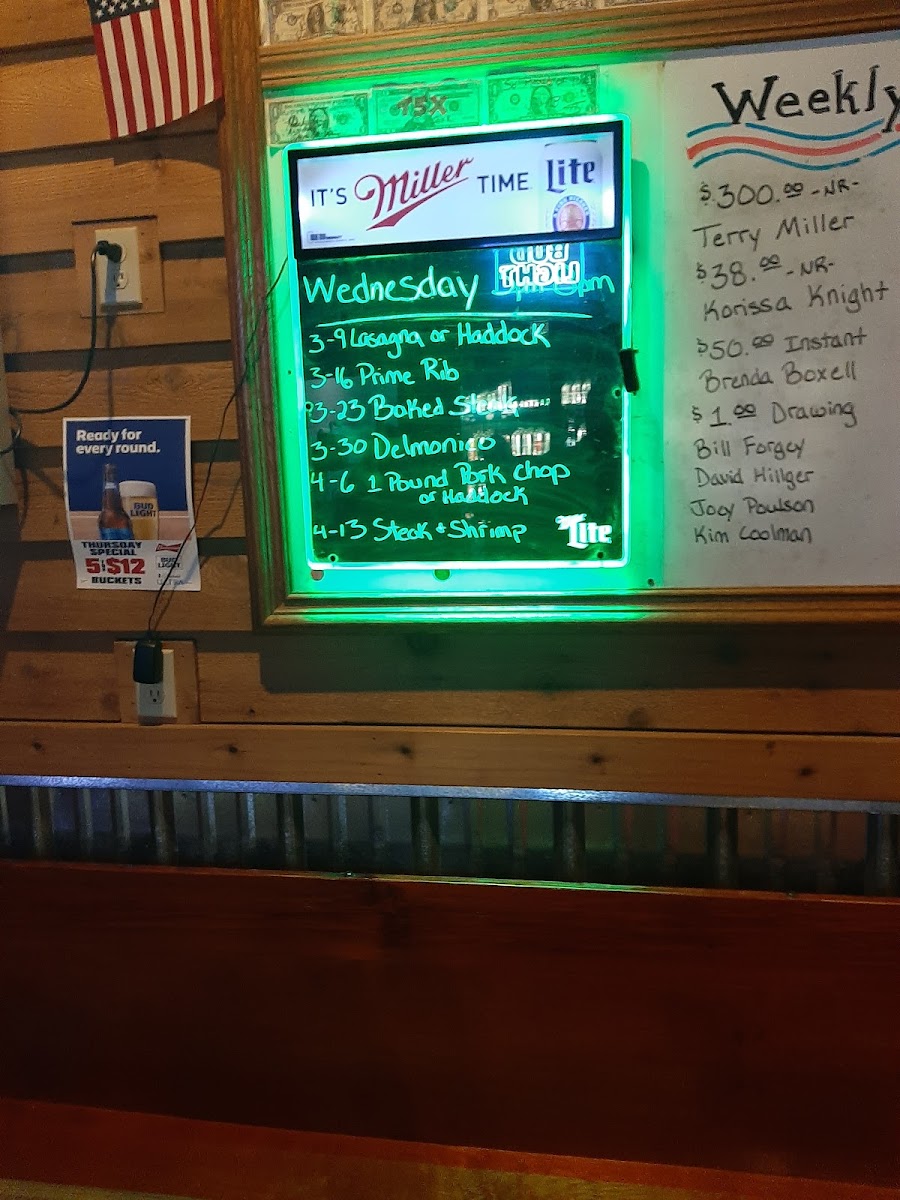 T5X
IT'S Miller TIME Lite
BUD LIGHT
Wednesday
3-9 Lasagna or Haddock
3-16 Prime Rib
3-23 Baked Steak
3-30 Delmonico
4-6 1 Pound Pork Chop
or Haddock
4-13 Steak + Shrimp
Lite
Weekly
$300.00 -NR-
Terry Miller
$38.00 -NR-
Korissa Knight
$50.00 Instant
Brenda Boxell
$1.00 Drawing
Bill Forgey
David Hillger
Joey Poulson
Kim Coolman
Ready for
every round.
BUD
LIGHT
THURSDAY
SPECIAL
5 $12
BUCKETS
BUD
LIGHT